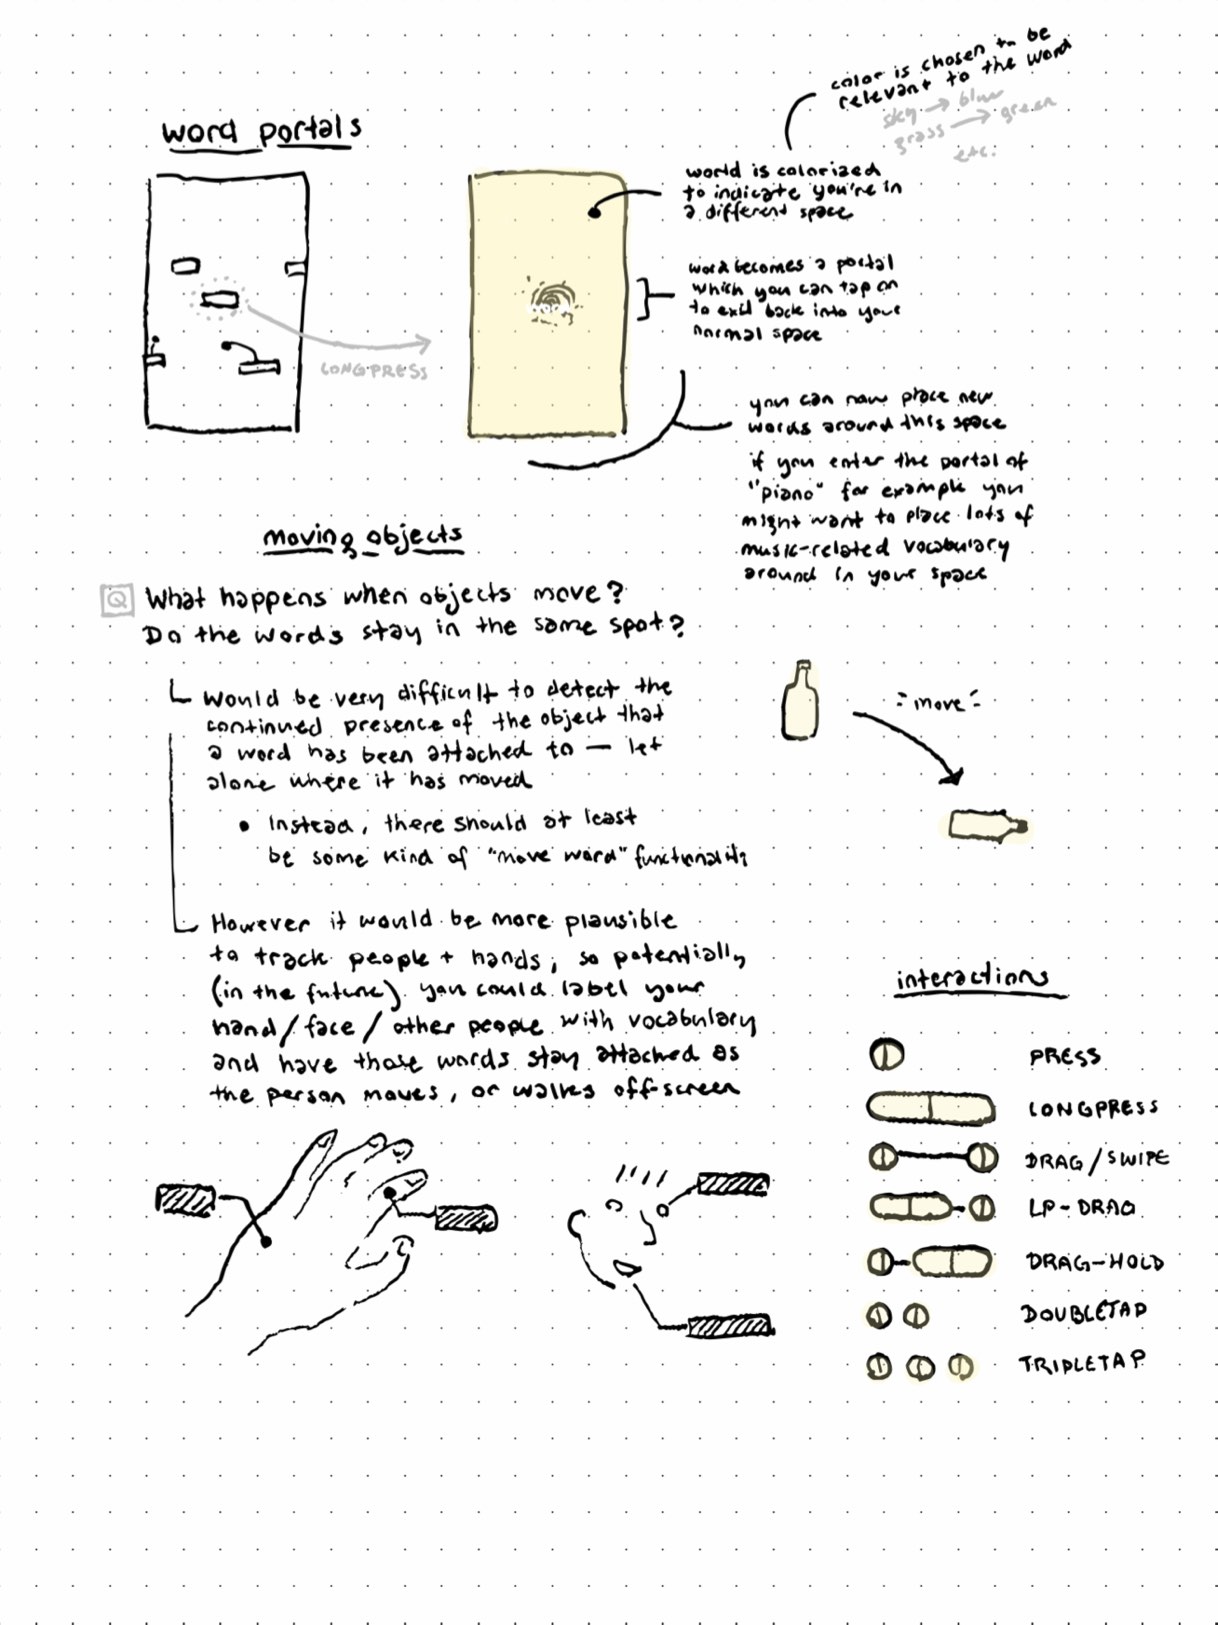 color is chosen to be
relevant to the word
sky → blue
grass → green
etc.
word portals
world is colorized
to indicate you're in
a different space
word becomes a portal
which you can tap on
to exit back into your
normal space
LONGPRESS
you can now place new
words around this space
if you enter the portal of
"piano" for example you
might want to place lots of
music-related vocabulary
around in your space
moving objects
Q What happens when objects move?
Do the words stay in the same spot?
Would be very difficult to detect the
continued presence of the object that
a word has been attached to — let
alone where it has moved
• Instead, there should at least
be some kind of "move word" functionality
-move-
However it would be more plausible
to track people + hands, so potentially
(in the future) you could label your
hand/face/other people with vocabulary
and have those words stay attached as
the person moves, or walks off-screen
interactions
PRESS
LONGPRESS
DRAG/SWIPE
LP-DRAG
DRAG-HOLD
DOUBLETAP
TRIPLETAP